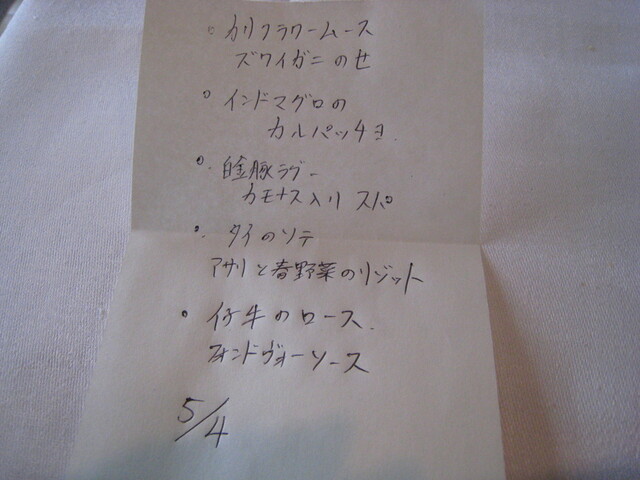 ○ カリフラワームース
ズワイガニのせ
○ インドマグロの
カルパッチョ.
○ 白金豚ラグー
カモナス入り スパ
○ タイのソテ
アサリと春野菜のリゾット
○ 仔牛のロース.
フォンドヴォーソース
5/4